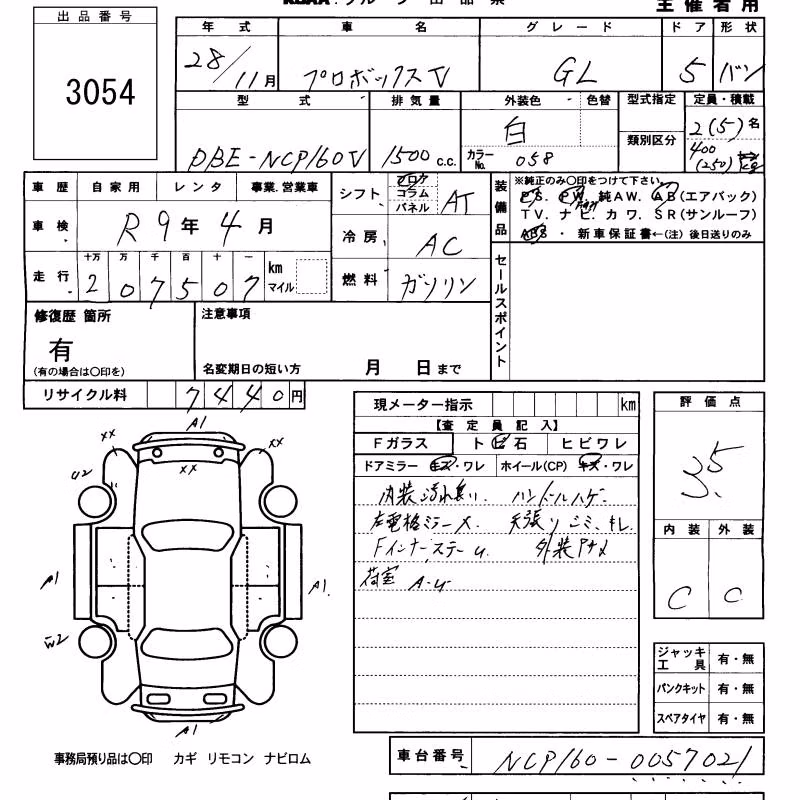 主催者用
出品番号
3054
年式 車名 グレード ドア 形状
28/11月 プロボックスV GL 5 バン
型式 排気量 外装色 色替 型式指定 定員・積載
DBE-NCP160V 1500 c.c. 白 カラーNo. 058 類別区分 2(5)名 400(250)kg
車歴 自家用 レンタ 事業.営業車
シフト フロア コラム パネル AT
車検 R9年4月
冷房 AC
走行 十万 万 千 百 十 一
207507 km マイル
燃料 ガソリン
装備品 ※純正のみ〇印をつけて下さい。
P.S. P.W. 純A W. A B(エアバック)
T V. ナビ. カ ワ. S R(サンルーフ)
ABS ・ 新車保証書←(注) 後日送りのみ
セールスポイント
修復歴 箇所
有
(有の場合は〇印を)
注意事項
名変期日の短い方 月 日まで
リサイクル料 7440円
現メーター指示 km
【査定員記入】
Fガラス ト ビ 石 ヒビワレ
ドアミラー キズ・ワレ ホイール(CP) キズ・ワレ
内装汚れ臭い. ハンドルハゲ
左電格ミラーX. 天張りシミ、キレ
FインナーステーU 外装アサメ
荷室 A-U
評価点
3.5
内装 外装
C C
A1
XX XX
XX
U2
A1 A1.
W2
A1
ジャッキ工具 有・無
パンクキット 有・無
スペアタイヤ 有・無
事務局預り品は〇印 カギ リモコン ナビロム
車台番号 NCP160-0057021